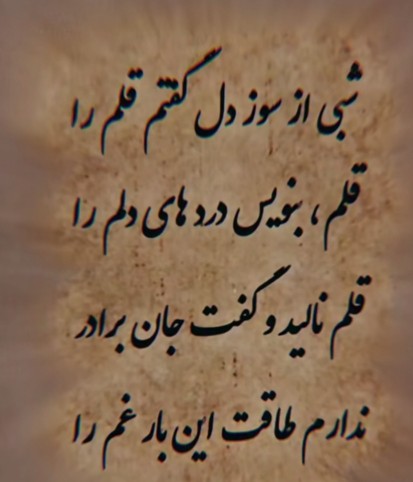 شبی از سوز دل گفتم قلم را
قلم ، بنویس درد های دلم را
قلم نالید و گفت جان برادر
ندارم طاقت این بار غم را